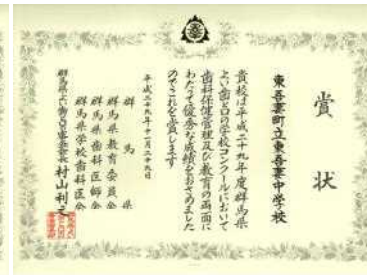 賞状
東吾妻町立東吾妻中学校
貴校は平成二十九年度群馬県
よい歯と口の学校コンクールにおいて
歯科保健管理及び教育の両面に
わたって優秀な成績をおさめました
のでこれを賞します
平成二十九年十一月二十九日
群馬県
群馬県教育委員会
群馬県歯科医師会
群馬県学校歯科医会
村山利之